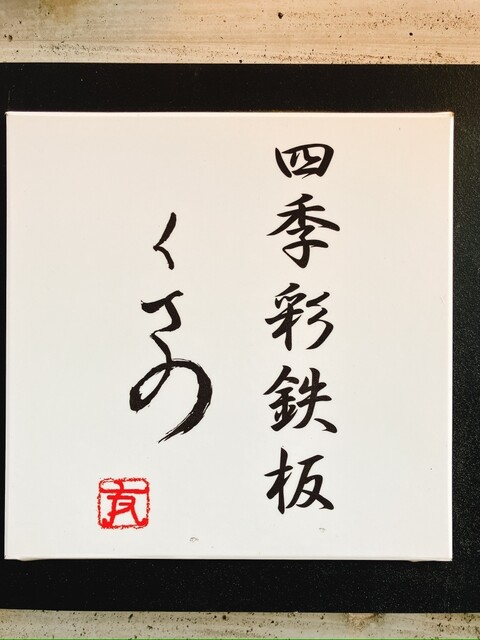 四季彩鉄板
くさの
友